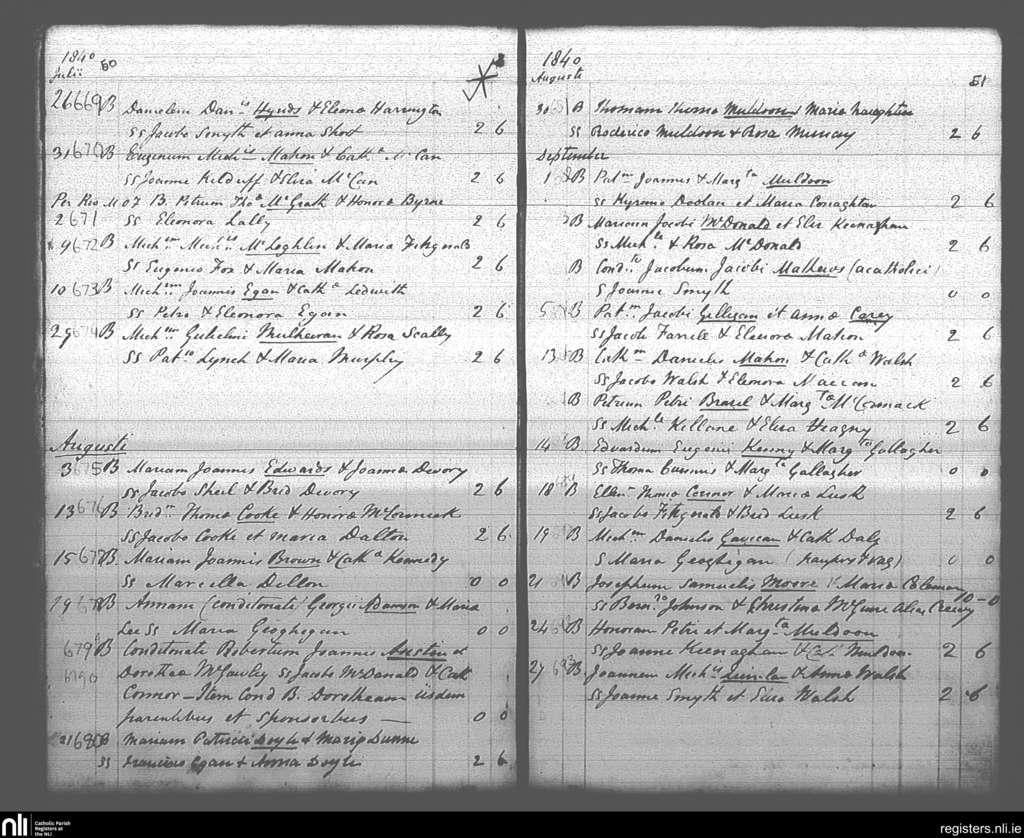 1840
Julii 50
26 669 B Danielem Danis Hynds & Eleona Harrington
SS Jacobo Smyth et anna Short 2 6
31 670 B Eugenium Michis Mahon & Catha McCan
SS Joanne Kilduff & Eliza McCan 2 6
B Petrum Thoa McGrath & Honora Byrne
2 671 SS Eleonora Lally 2 6
9 672 B Michem Michls McLoghlin & Maria Fitzgerald
SS Eugenio Fox & Maria Mahon 2 6
10 673 B Michem Joannis Egan & Catha Ledwith
SS Petro & Eleonora Egan 2 6
29 674 B Michem Gulielmi Mulheran & Rosa Scally
SS Patto Lynch & Maria Murphy 2 6
Augusti
3 675 B Mariam Joannis Edwards & Joanna Devory
SS Jacobo Sheil & Brid Devory 2 6
13 676 B Bridm Thoma Cooke & Honora McCormick
SS Jacobo Cooke et maria Dalton 2 6
15 677 B Mariam Joannis Brown & Catha Kennedy
SS Marcella Dillon 0 0
19 678 B Annam (conditonate) Georgii Adamson & Maria
Lee SS Maria Geoghegan 0 0
679 B Conditonate Robertum Joannis Austin et
Dorothea McGawley SS Jacobo McDonald & Cath
Connor – Item Cond B. Dorotheam iisdem
parentibus et Sponsoribus — 0 0
21 680 B Mariam Patricii Doyle & Marg Dunne
SS Francisco Egan & Anna Doyle 2 6
1840
Augusti 51
30 B Thomam Thoma Muldoon & Maria Naughton
SS Roderico Muldoon & Rosa Murray 2 6
September
1 B Patm Joannis & Margta Muldoon
SS Kyrano Doolan et Maria Conaghton 2 6
B Mariam Jacobi McDonald et Eliz Keenaghan
SS Michle & Rosa McDonald 2 6
B Condte Jacobum Jacobi Mathews (acatholici)
S Joanne Smyth 0 0
5 B Patm Jacobi Gilligan et anna Carey
SS Jacob Farrell & Eleanora Mahon 2 6
13 B Cathm Danielis Mahon & Catha Walsh
SS Jacobo Walsh & Eleonora 2 6
B Petrum Petri Brazel & Margta McCormack
SS Michle Killane & Eliza Heagny 2 6
14 B Edvardum Eugenii Kenny & Margta Gallagher
SS Thoma & Margta Gallagher 0 0
18 B Ellenm Thoma Connor & Maria Lusk
SS Jacobo Fitzgerald & Brid Lusk 2 6
19 B Michm Danielis & Cath Daly
S Maria Geoghigan 0 0
21 B Josephum Samuelis Moore & Maria Coleman
SS Berndo Johnson & Christina McGuire Alias Creevy 10-0
24 B Honoram Petri et Margta Muldoon
SS Joanne Keenaghan & Muldoon 2 6
27 B Joannem Michis Quinlan & Anna Walsh
SS Joanne Smyth et Eliza Walsh 2 6
nli Catholic Parish
Registers at
the NLI
registers.nli.ie